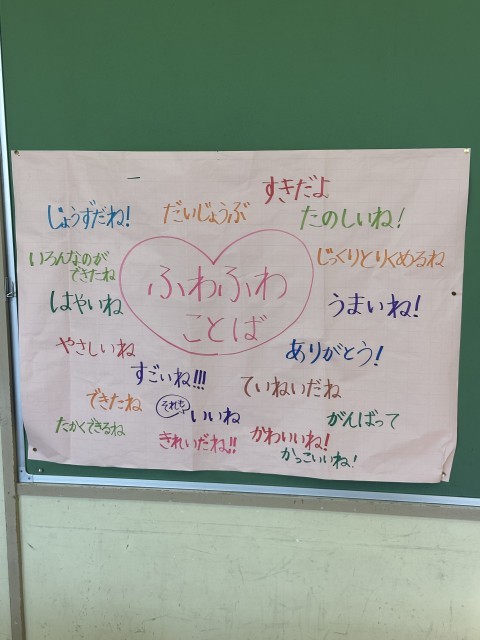 すきだよ
じょうずだね!
だいじょうぶ
たのしいね!
いろんなのが
できたね
ふわふわ
ことば
じっくりとりくめるね
はやいね
うまいね!
やさしいね
ありがとう!
すごいね!!!
ていねいだね
できたね
それも
いいね
がんばって
たかくできるね
きれいだね!!
かわいいね!
かっこいいね!